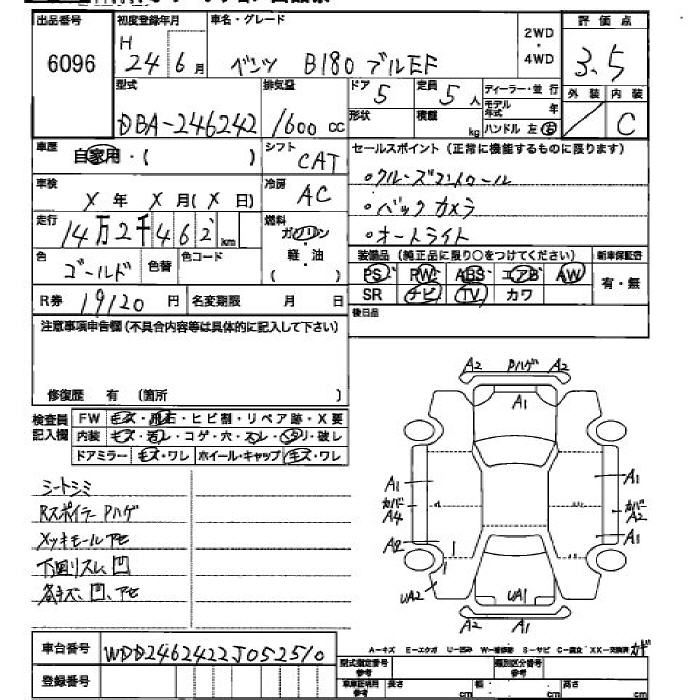 出品番号 初度登録年月 車名・グレード 2WD・4WD 評価点
6096 H 24年6月 ベンツ B180 ブルEF 3.5
型式 排気量 ドア 5 定員 5人 ディーラー・並行 外装 内装
DBA-246242 1600 cc 形状 積載 kg モデル年式 年 ハンドル 左 右 C
車歴 自家用・( ) シフト CAT セールスポイント(正常に機能するものに限ります)
車検 X年X月(X日) 冷房 AC ・クルーズコントロール
・バックカメラ
走行 14万2千462km 燃料 ガソリン・軽・油 ( ) ・オートライト
色 ゴールド 色替 色コード 装備品(純正品に限り○をつけてください) 新車保証書
PS PW ABS エアB AW 有・無
SR ナビ TV カワ
R券 19120円 名変期限 月 日 後日品
注意事項申告欄(不具合内容等は具体的に記入して下さい)
修復歴 有(箇所 )
検査員記入欄 FW キズ・飛石・ヒビ割・リペア跡・X要
内装 キズ・汚レ・コゲ・穴・スレ・ヘタリ・破レ
ドアミラー キズ・ワレ ホイール・キャップ キズ・ワレ
シートシミ
Rスポイラー Pハゲ
メッキモールアセ
下回リスレ、凹
各キズ、凹、アセ
A2 Pハゲ A2
A1
A1 A1
カバー A4 カバー A2
A2 A1
UA2 UA1
A2 A1
車台番号 WDD2462422J052510
登録番号
A-キズ E-エクボ U-凹み W-補修跡 S-サビ C-腐食 XX-交換済
型式指定番号 類別区分番号
車庫証明用参考 長さ cm 幅 cm 高さ cm